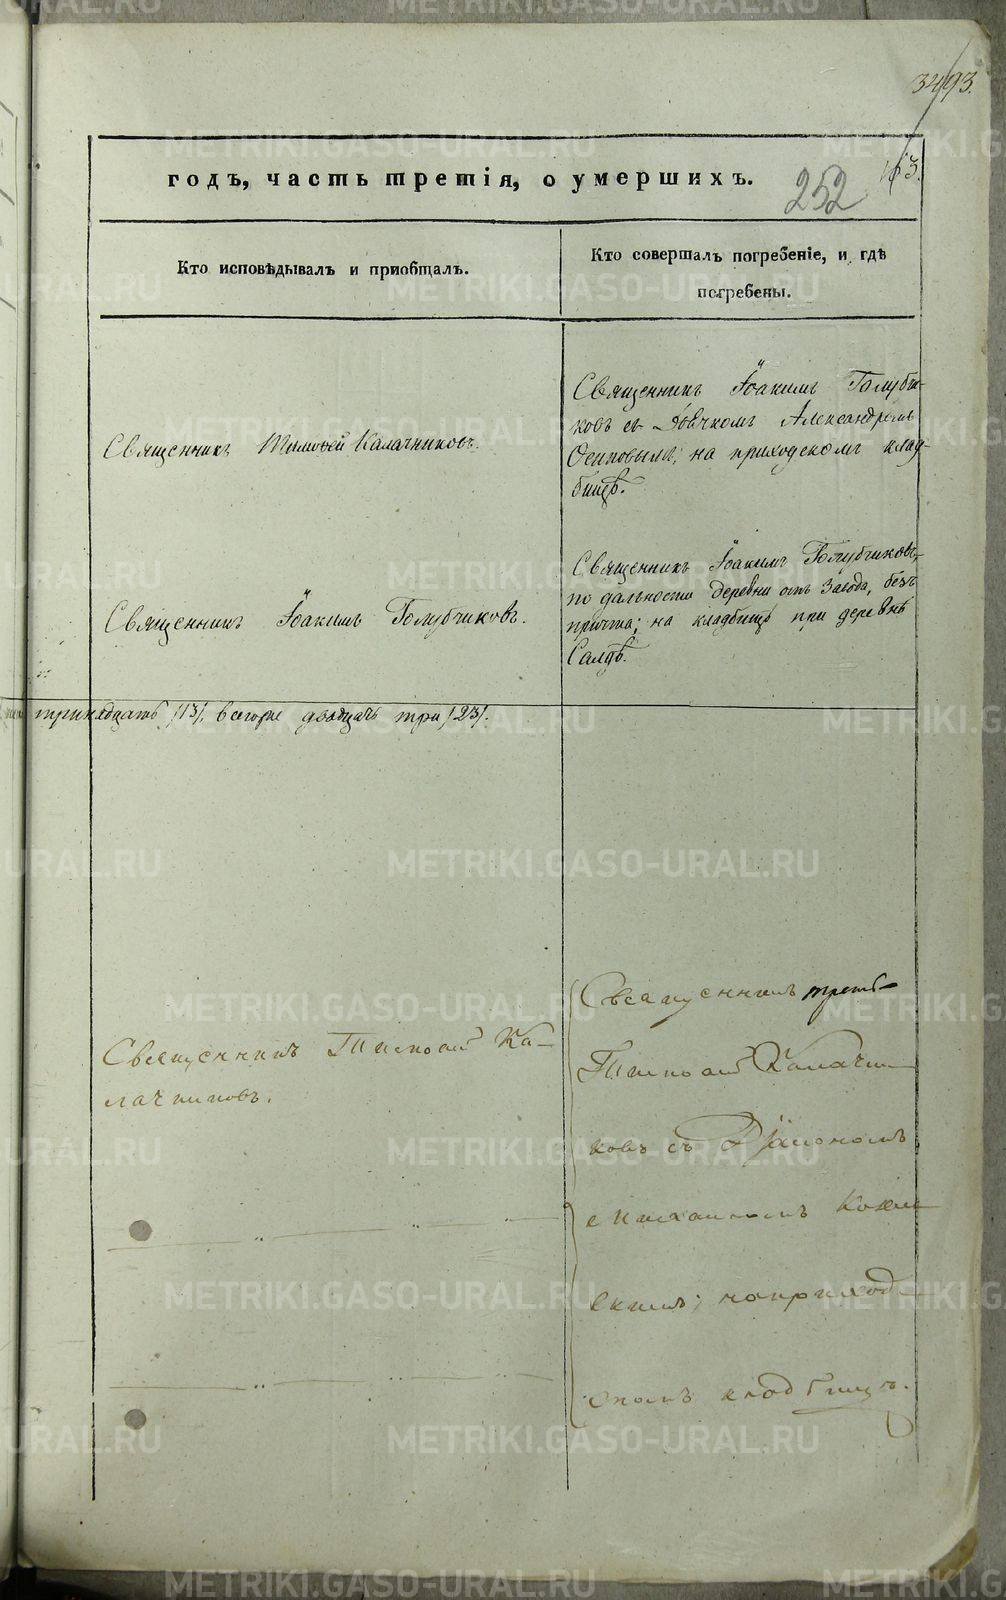 3493.
годъ, часть третія, о умершихъ.
252
163.
Кто исповѣдывалъ и приобщалъ.
Кто совершалъ погребеніе, и гдѣ
погребены.
Священникъ Тимоѳей Калачниковъ.
Священникъ Іоакимъ Голубчи-
ковъ съ Александромъ
Осиповымъ; на приходскомъ клад-
бищѣ.
Священникъ Іоакимъ Голубчиковъ.
Священникъ Іоакимъ Голубчиковъ,
по дальности деревни отъ Завода, безъ
причта; на кладбищѣ при деревнѣ
Салдѣ.
тринадцать /13/, всего двадцать три /23/.
Священникъ Тимоѳей Ка-
лачниковъ.
Священникъ
Тимоѳей Калачни-
ковъ съ Діакономъ
скимъ; на приход-
скомъ кладбищѣ.
METRIKI.GASO-URAL.RU